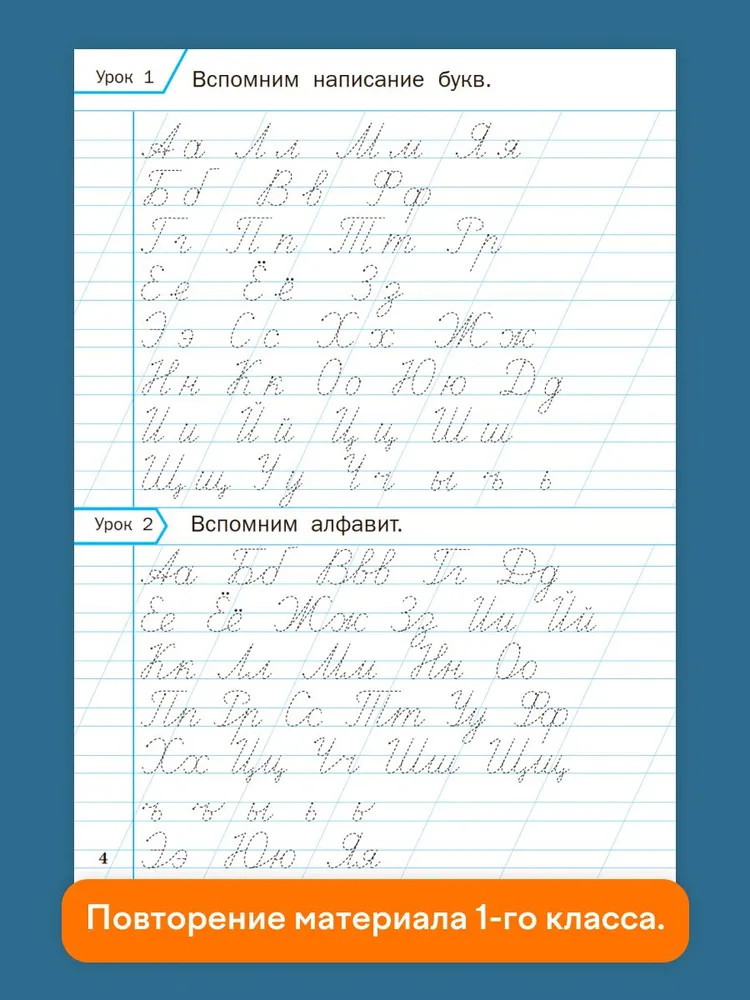 Урок 1 Вспомним написание букв.
Аа Лл Мм Яя
Бб Вв Фф
Гг Пп Тт Рр
Ее Ёё Зз
Ээ Сс Хх Жж
Нн Кк Оо Юю Дд
Ии Йй Цц Шш
Щщ Уу Чч ы ъ ь
Урок 2 Вспомним алфавит.
Аа Бб Ввв Гг Дд
Ее Ёё Жж Зз Ии Йй
Кк Лл Мм Нн Оо
Пп Рр Сс Тт Уу Фф
Хх Цц Чч Шш Щщ
ъ ъ ы ь ь
Ээ Юю Яя
4
Повторение материала 1-го класса.